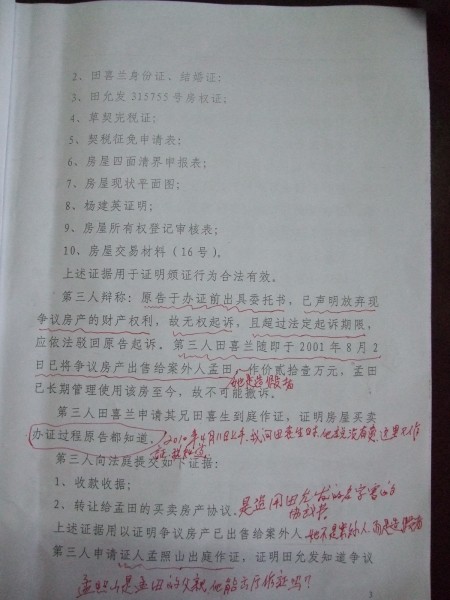 2、田喜兰身份证、结婚证;
3、田允发 315755 号房权证;
4、草契完税证;
5、契税征免申请表;
6、房屋四面清界申报表;
7、房屋现状平面图;
8、杨建英证明;
9、房屋所有权登记审核表;
10、房屋交易材料(16 号)。
上述证据用于证明颁证行为合法有效。
第三人辩称:原告于办证前出具委托书,已声明放弃现
争议房产的财产权利,故无权起诉,且超过法定起诉期限,
应依法驳回原告起诉。第三人田喜兰随即于 2001 年 8 月 2
日已将争议房产出售给案外人孟田,作价贰拾壹万元,孟田
她是
已长期管理使用该房至今,故不可能撤诉。
第三人田喜兰申请其兄田喜生到庭作证,证明房屋买卖
办证过程原告都知道。2010年4月11日上午,我问田喜生时,他说没有
第三人向法庭提交如下证据:
1、收款收据;
2、转让给孟田的买卖房产协议。是盗用田允发的名字写的
上述证据用以证明争议房产已出售给案外人 她不是案外人,而是
第三人申请证人孟照山出庭作证,证明田允发知道争议
孟照山是孟田的父亲他能出庭作证吗?